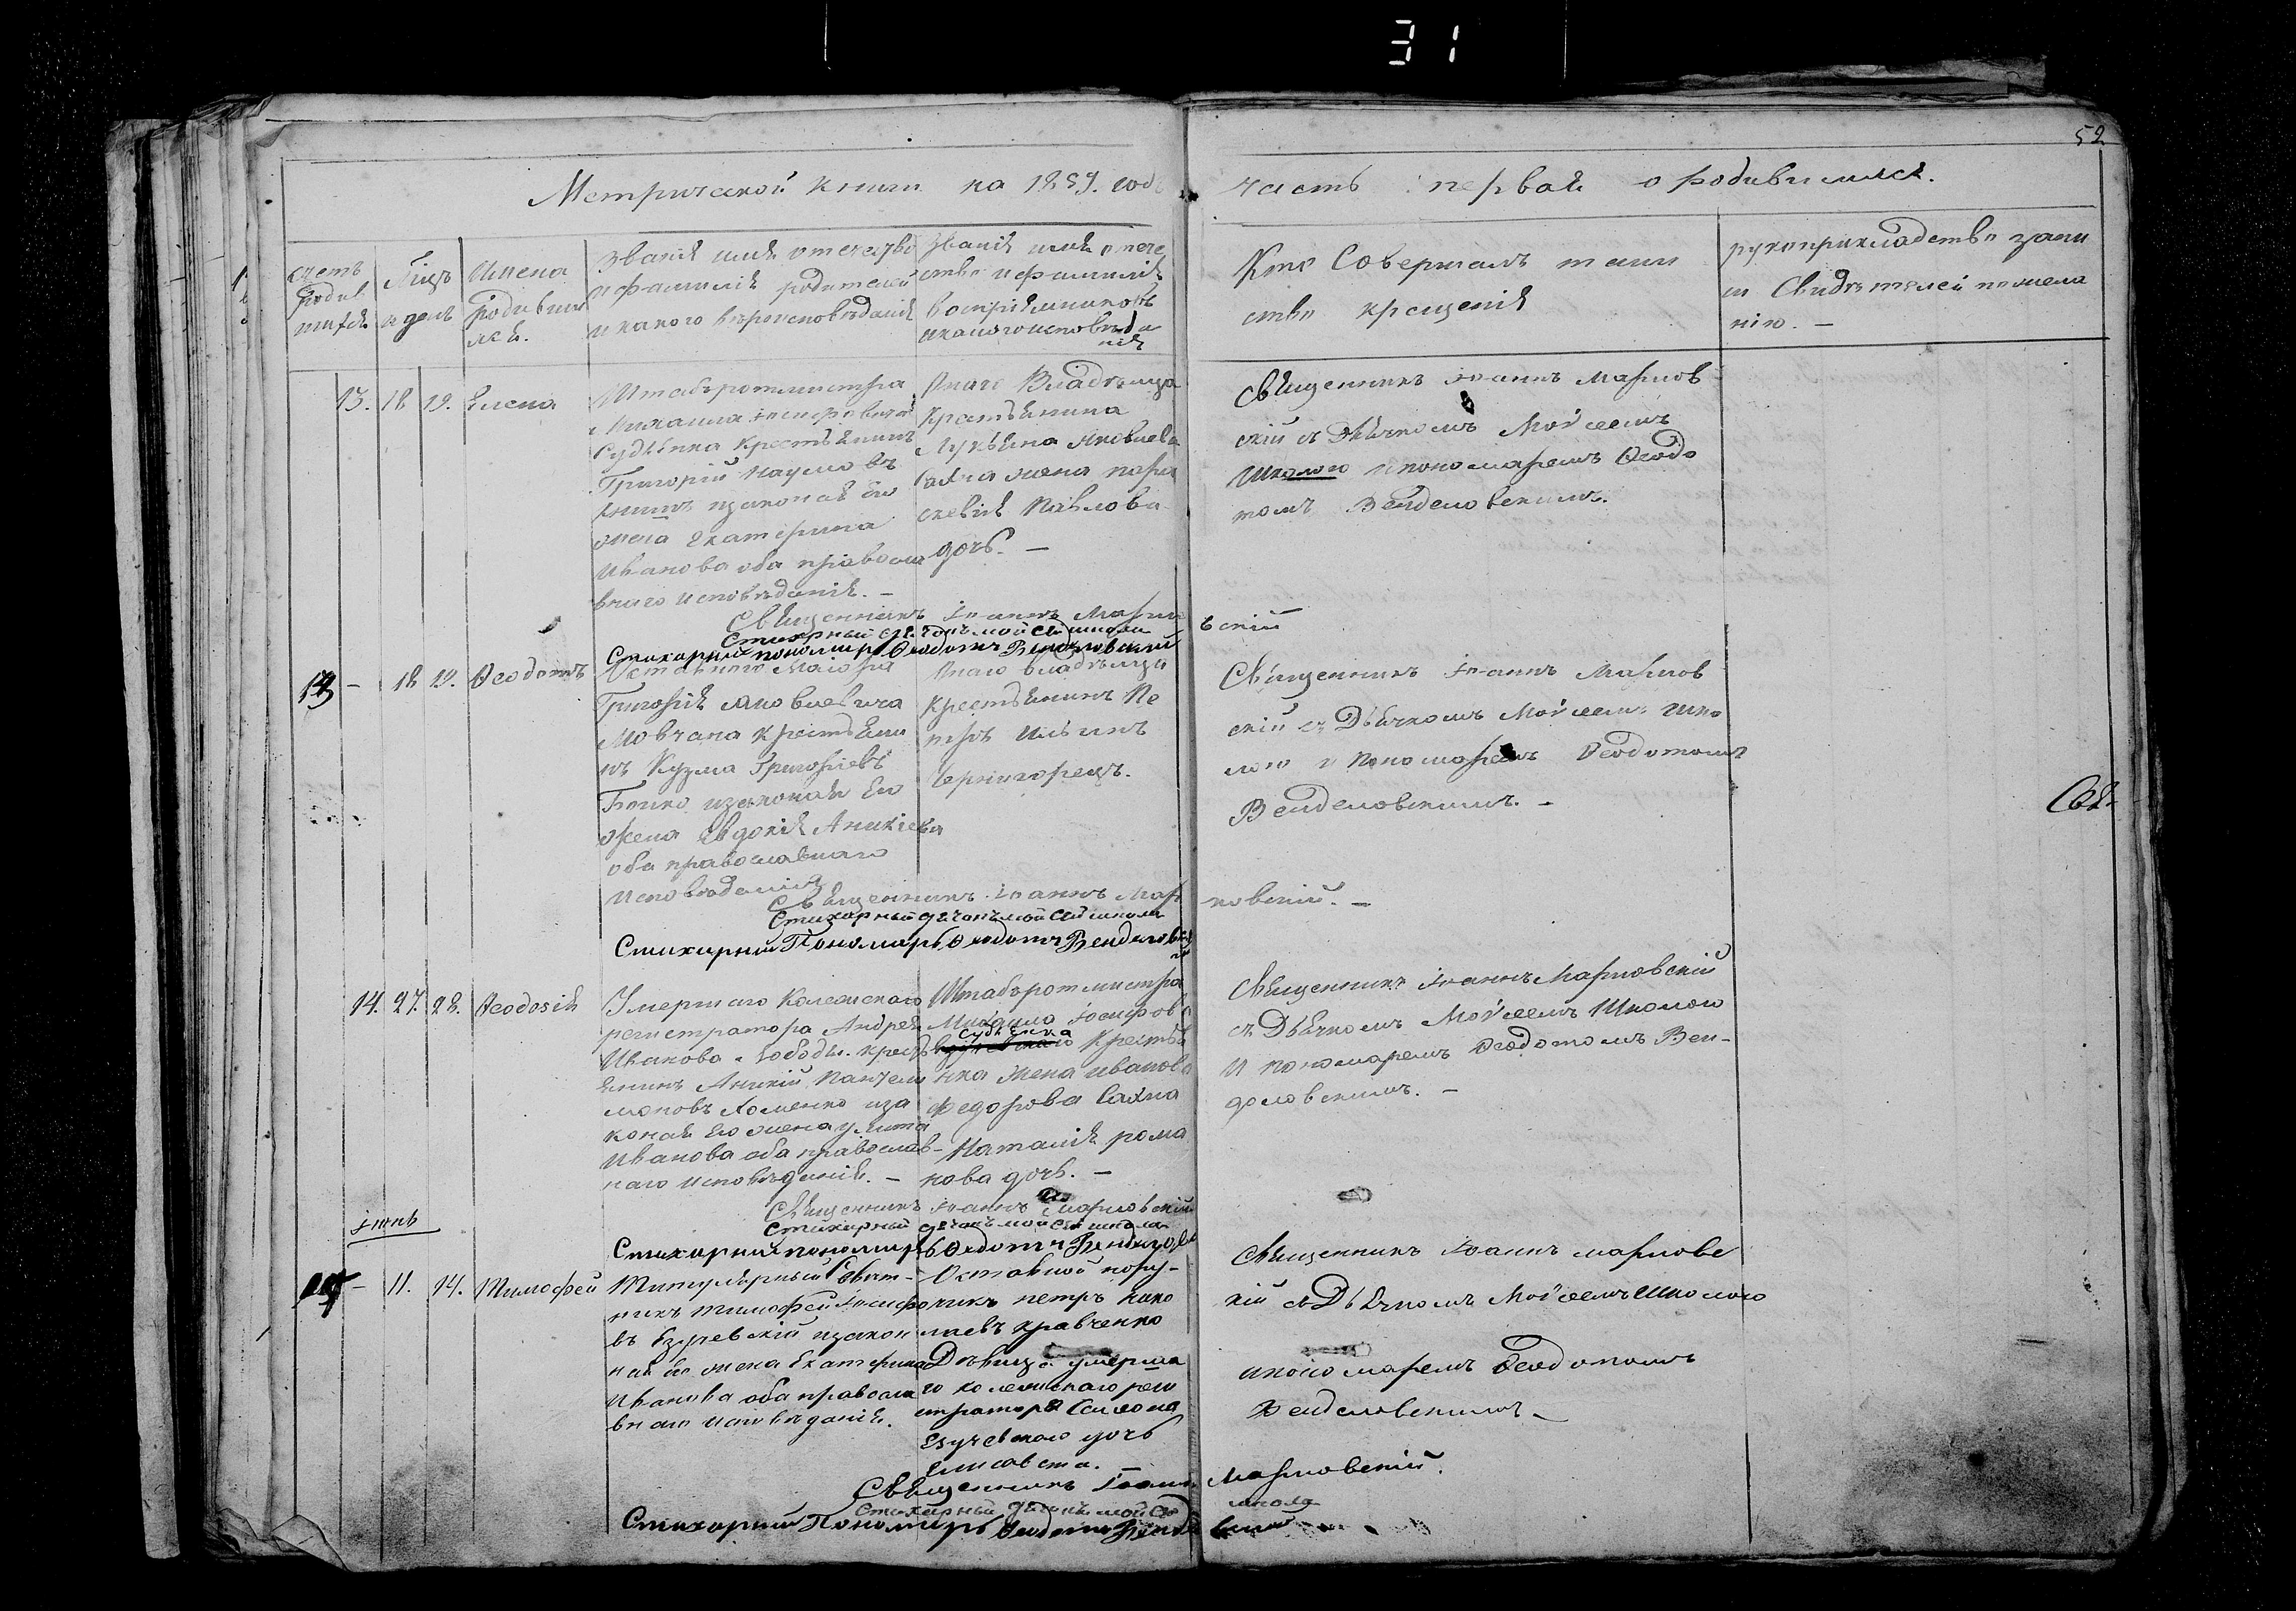 31
52
Метрической книги на 1859. годъ часть первая о родившихся.
счетъ родив шихся
Мцъ и день
Имена родивши хся.
Званія имя отечество
и фамилія родителей
и какого вероисповеданія
Званія имя отече
ство и фамилія
воспріемниковъ
и какого исповеда
нія
Кто Совершалъ таин
ство крещенія
рукоприкладство запи
си Свидетелей по жела
нію. —
13. 18 19. Елена
Штабъротмистра
Михаила Іосифовича
Судьенка крестьянинъ
Григорій Наумовъ
и законная Его
жена Екатерина
Иванова оба правосла
внаго исповеданія. —
Онаго Владельца
крестьянина
Лукьяна Яковлева
жена пара
скевія Павлова
дочь. —
Священникъ Іоаннъ Марков
скій съ Дьячкомъ Мойсеемъ
Школою и пономаремъ Ѳеодо
томъ Венделовскимъ.
Священникъ Іоаннъ Марковскій
Стихарный дячокъ Мойсей Школа
Стихарный пономарь Ѳеодотъ Венделовскій
13 — 18 19. Ѳеодотъ
Маіора
Григорія Яковлевича
Мовчана крестьяни
нъ Кузма Григоріевъ
Бойко и законная Его
жена Евдокія Аникіева
оба православнаго
исповеданія
Онаго владельца
крестьянинъ Пе
тръ Ильинъ
Черногорецъ.
Священникъ Іоаннъ Марков
скій съ Дьячкомъ Мойсеемъ Шко
лою и пономаремъ Ѳеодотомъ
Венделовскимъ. —
Священникъ Іоаннъ Марковскій. —
Стихарный дячокъ Мойсей Школа
Стихарный Пономарь Ѳеодотъ Венделовскій
14. 27. 28. Ѳеодосія
Умершаго Колежскаго
регистратора Андрея
Иванова крестъ
янинъ Аникій Пантели
моновъ Хоменко и за
коная Его жена Улита
Иванова оба православ-
наго исповеданія. —
Штабъротмистра
Михаила Іосифов
Судьенка
Крестья
нка жена Иванова
Федорова
Наталія рома
нова дочь. —
Священникъ Іоаннъ Марковскій
съ Дьячкомъ Мойсеемъ Школою
И пономаремъ Ѳеодотомъ Вен-
деловскимъ. —
Священникъ Іоаннъ Марковскій
Стихарный дячокъ Мойсей Школа
Стихарный пономарь Ѳеодотъ Венделовс
Іюнь
— 11. 14. Тимофей
Титулярный Совет-
никъ Тимофей Іосифо
въ Езучевскій и закон
ная Его жена Екатерина
Иванова оба правосла
внаго исповеданія.
Оставной пору-
чикъ Петръ Нико
лаевъ Кравченко
Девица умерша
го колежскаго реги
стратора Симона
Езучевскаго дочь
Елисавета. —
Священникъ Іоаннъ Марковс
кій съ Дьячкомъ Мойсеемъ Школою
и пономаремъ Ѳеодотомъ
Венделовскимъ —
Священникъ Іоаннъ Марковскій.
Стихарный дячокъ Мойсей Школа
Стихарный Пономарь Ѳеодотъ Венделовскій